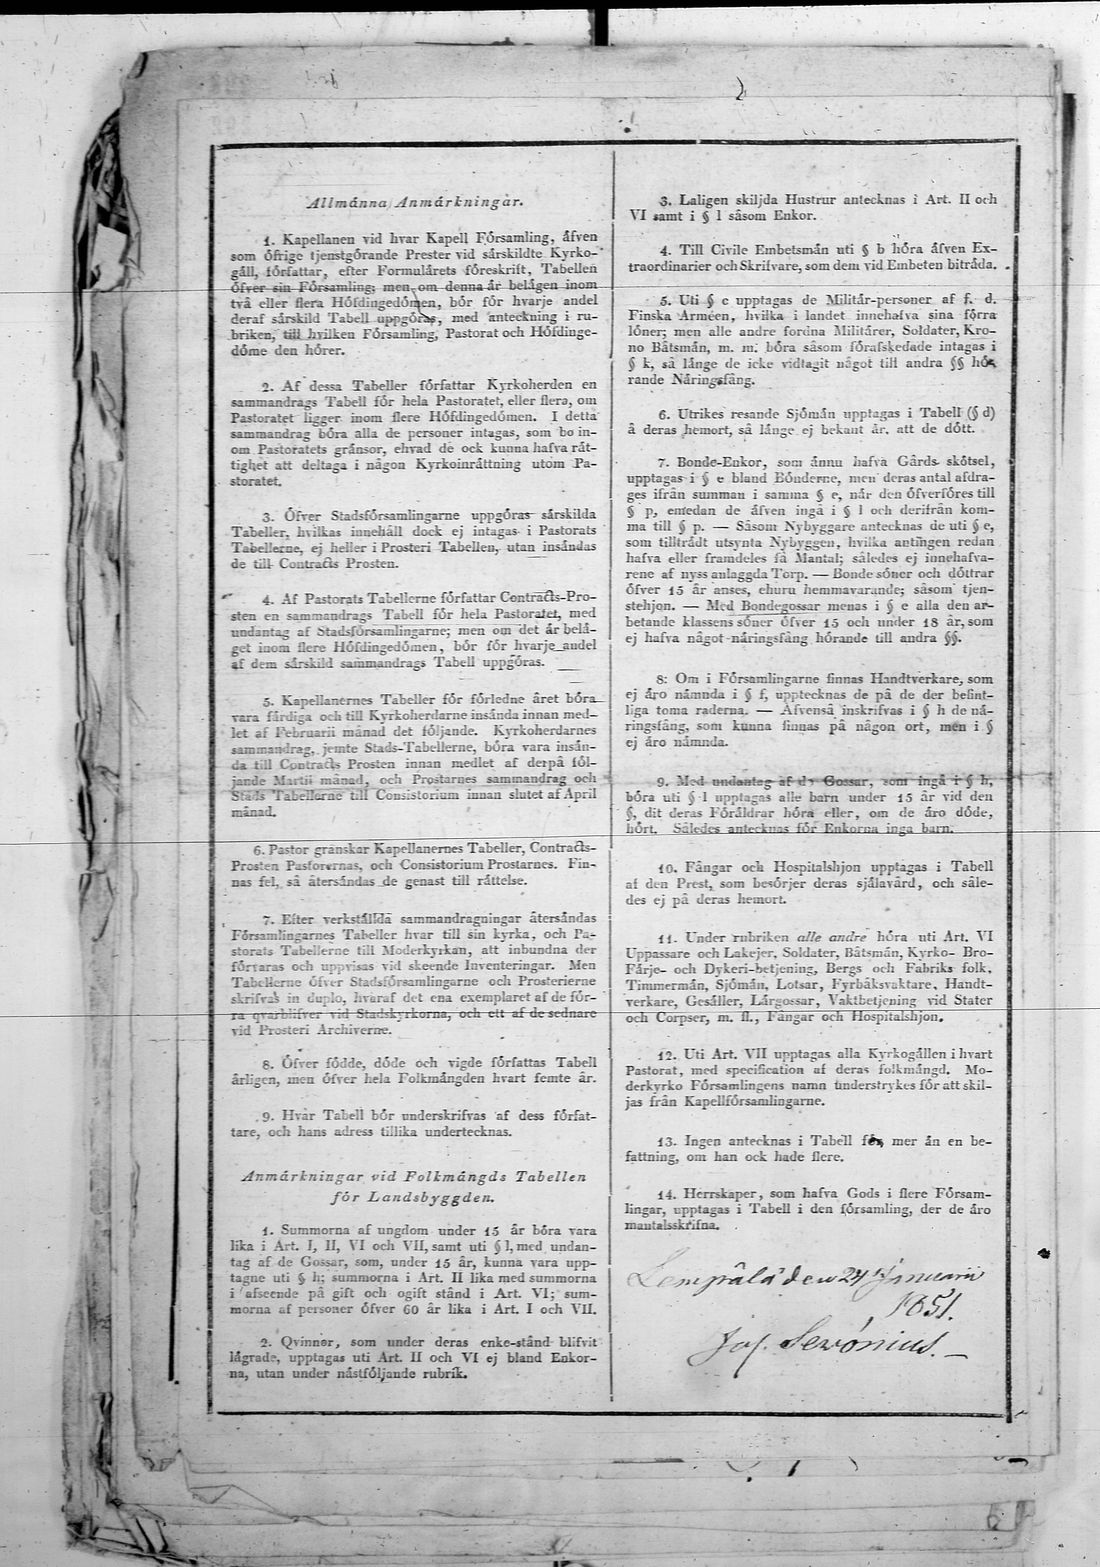 Allmänna Anmärkningar.
1. Kapellanen vid hvar Kapell Församling, äfven
som öfrige tjenstgörande Prester vid särskildte Kyrko-
gäll, författar, efter Formulärets föreskrift, Tabellen
öfver sin Församling; men om denna är belägen inom
två eller flera Höfdingedömen, bör för hvarje andel
deraf särskild Tabell uppgöras, med anteckning i ru-
briken, till hvilken Församling, Pastorat och Höfdinge-
döme den hörer.
2. Af dessa Tabeller författar Kyrkoherden en
sammandrags Tabell för hela Pastoratet, eller flera, om
Pastoratet ligger inom flere Höfdingedömen. I detta
sammandrag böra alla de personer intagas, som bo in-
om Pastoratets gränsor, ehvad de ock kunna hafva rät-
tighet att deltaga i någon Kyrkoinrättning utom Pa-
storatet.
3. Öfver Stadsförsamlingarne uppgöras särskilda
Tabeller, hvilkas innehåll dock ej intagas i Pastorats
Tabellerne, ej heller i Prosteri Tabellen, utan insändas
de till Contracts Prosten.
4. Af Pastorats Tabellerne författar Contracts-Pro-
sten en sammandrags Tabell för hela Pastoratet, med
undantag af Stadsförsamlingarne; men om det är belä-
get inom flere Höfdingedömen, bör för hvarje andel
af dem särskild sammandrags Tabell uppgöras.
5. Kapellanernes Tabeller för förledne året böra
vara färdiga och till Kyrkoherdarne insända innan med-
let af Februarii månad det följande. Kyrkoherdarnes
sammandrag, jemte Stads-Tabellerne, böra vara insän-
da till Contracts Prosten innan medlet af derpå föl-
jande Martii månad, och Prostarnes sammandrag och
Stads Tabellerne till Consistorium innan slutet af April
månad.
6. Pastor granskar Kapellanernes Tabeller, Contracts-
Prosten Pastorernas, och Consistorium Prostarnes. Fin-
nas fel, så återsändas de genast till rättelse.
7. Efter verkställda sammandragningar återsändas
Församlingarnes Tabeller hvar till sin kyrka, och Pa-
storats Tabellerne till Moderkyrkan, att inbundna der
förvaras och uppvisas vid skeende Inventeringar. Men
Tabellerne öfver Stadsförsamlingarne och Prosterierne
skrifvas in duplo, hvaraf det ena exemplaret af de för-
ra qvarblifver vid Stadskyrkorna, och ett af de sednare
vid Prosteri Archiverne.
8. Öfver födde, döde och vigde författas Tabell
årligen, men öfver hela Folkmängden hvart femte år.
9. Hvar Tabell bör underskrifvas af dess förfat-
tare, och hans adress tillika undertecknas.
Anmärkningar vid Folkmängds Tabellen
för Landsbyggden.
1. Summorna af ungdom under 15 år böra vara
lika i Art. I, II, VI och VII, samt uti § l, med undan-
tag af de Gossar, som, under 15 år, kunna vara upp-
tagne uti § h; summorna i Art. II lika med summorna
i afseende på gift och ogift stånd i Art. VI; sum-
morna af personer öfver 60 år lika i Art. I och VII.
2. Qvinnor, som under deras enke-stånd blifvit
lägrade, upptagas uti Art. II och VI ej bland Enkor-
na, utan under nästföljande rubrik.
3. Laligen skiljda Hustrur antecknas i Art. II och
VI samt i § l såsom Enkor.
4. Till Civile Embetsmän uti § b höra äfven Ex-
traordinarier och Skrifvare, som dem vid Embeten biträda.
5. Uti § c upptagas de Militär-personer af f. d.
Finska Arméen, hvilka i landet innehafva sina förra
löner; men alle andre fordna Militärer, Soldater, Kro-
no Båtsmän, m. m. böra såsom förafskedade intagas i
§ k, så länge de icke vidtagit något till andra §§ hö-
rande Näringsfång.
6. Utrikes resande Sjömän upptagas i Tabell (§ d)
å deras hemort, så länge ej bekant är, att de dött.
7. Bonde-Enkor, som ännu hafva Gårds skötsel,
upptagas i § e bland Bönderne, men deras antal afdra-
ges ifrån summan i samma § e, når den öfverföres till
§ p, emedan de äfven ingå i § l och derifrån kom-
ma till § p. — Såsom Nybyggare antecknas de uti § e,
som tillträdt utsynta Nybyggen, hvilka antingen redan
hafva eller framdeles få Mantal; således ej innehafva-
rene af nyss anlaggda Torp. — Bonde söner och döttrar
öfver 15 år anses, ehuru hemmavarande; såsom tjen-
stehjon. — Med Bondegossar menas i § e alla den ar-
betande klassens söner öfver 15 och under 18 år, som
ej hafva något näringsfång hörande till andra §§.
8: Om i Församlingarne finnas Handtverkare, som
ej äro nämnda i § f, upptecknas de på de der befint-
liga toma raderna. — Äfvenså inskrifvas i § h de nä-
ringsfång, som kunna finnas på någon ort, men i §
ej äro nämnda.
9. Med undantag af de Gossar, som ingå i § h,
böra uti § l upptagas alle barn under 15 år vid den
§, dit deras Föräldrar höra eller, om de äro döde,
hört. Således antecknas för Enkorna inga barn.
10. Fångar och Hospitalshjon upptagas i Tabell
af den Prest, som besörjer deras själavård, och såle-
des ej på deras hemort.
11. Under rubriken alle andre höra uti Art. VI
Uppassare och Lakejer, Soldater, Båtsmän, Kyrko- Bro-
Färje- och Dykeri-betjening, Bergs och Fabriks folk,
Timmermän, Sjömän, Lotsar, Fyrbåksvaktare, Handt-
verkare, Gesäller, Lärgossar, Vaktbetjening vid Stater
och Corpser, m. fl., Fångar och Hospitalshjon.
12. Uti Art. VII upptagas alla Kyrkogällen i hvart
Pastorat, med specification af deras folkmängd. Mo-
derkyrko Församlingens namn understrykes för att skil-
jas från Kapellförsamlingarne.
13. Ingen antecknas i Tabell för mer än en be-
fattning, om han ock hade flere.
14. Herrskaper, som hafva Gods i flere Försam-
lingar, upptagas i Tabell i den församling, der de äro
mantalsskrifna.
Lempälä den 24 Januarii
1851.
Jos. Servónius.